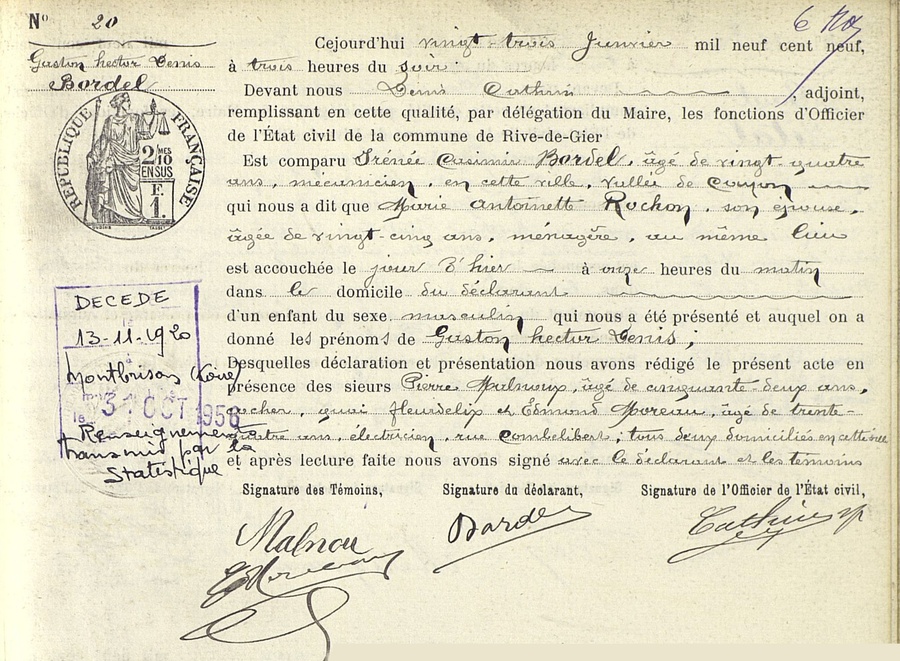 N° 20
Gaston hector Denis
Bordel
RÉPUBLIQUE FRANÇAISE
2/10 MES
EN SUS
F.
1.
DECEDE
le
13-11-1920
à
Montbrison (Loire)
le 31 OCT 1958
Renseignement
transmis par la
Statistique
Cejourd'hui vingt-trois Janvier mil neuf cent neuf,
à trois heures du soir
Devant nous Denis Cathin, adjoint,
remplissant en cette qualité, par délégation du Maire, les fonctions d'Officier
de l'État civil de la commune de Rive-de-Gier
Est comparu Irénée Casimir Bordel, âgé de vingt-quatre
ans, mécanicien, en cette ville, vallée de Couzon
qui nous a dit que Marie Antoinette Rochon, son épouse,
âgée de vingt-cinq ans, ménagère, au même lieu
est accouchée le jour d'hier à onze heures du matin
dans le domicile du déclarant
d'un enfant du sexe masculin qui nous a été présenté et auquel on a
donné les prénoms de Gaston hector Denis;
Desquelles déclaration et présentation nous avons rédigé le présent acte en
présence des sieurs Pierre Malnoux, âgé de cinquante-deux ans,
cocher, quai fleurdelix et Edmond Moreau, âgé de trente-
quatre ans, électricien, rue Combelibert, tous deux domiciliés en cette ville
et après lecture faite nous avons signé avec le déclarant et les témoins
Signature des Témoins, Signature du déclarant, Signature de l'Officier de l'État civil,
Malnou Bordel Cathin
EMoreau